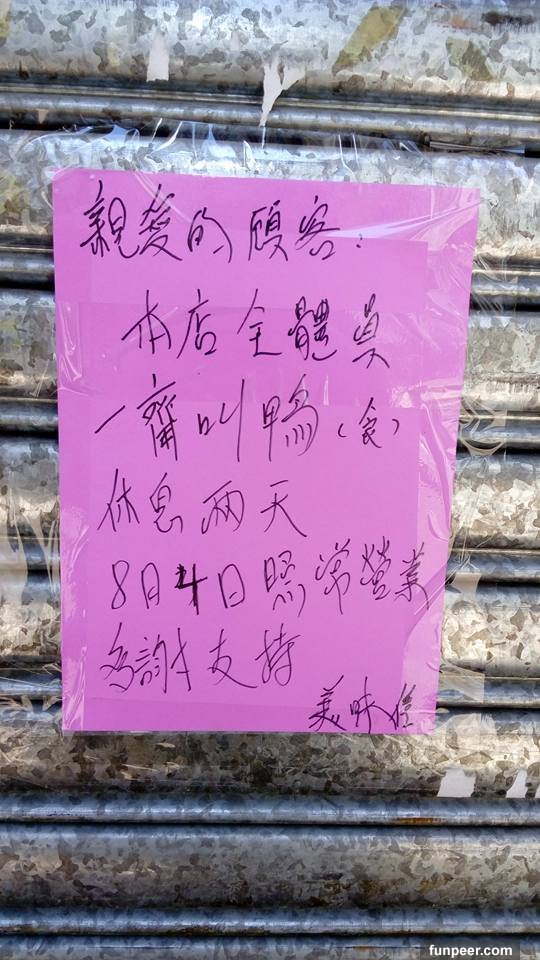 親愛的顧客:
本店全體員
一齊叫鴨(食)
休息兩天
8月4日照常營業
多謝支持
美味佳
funpeer.com